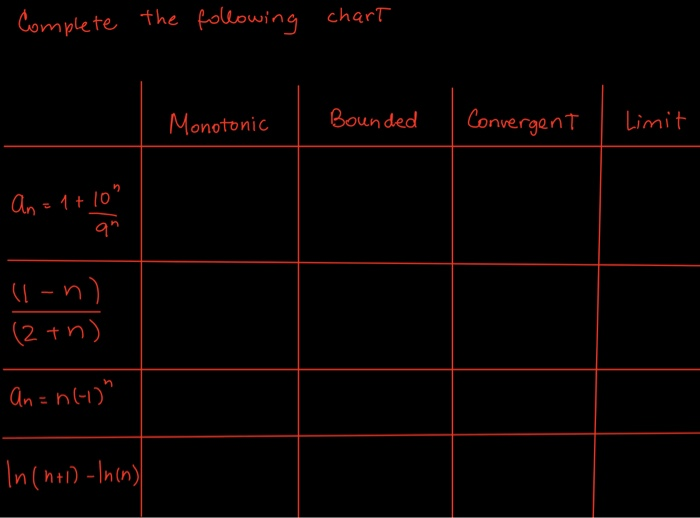 Complete the following chart
Monotonic Bounded Convergent Limit
an = 1 + 10^n
9^n
(1 - n)
(2 + n)
an = n(-1)^n
ln(n+1) - ln(n)